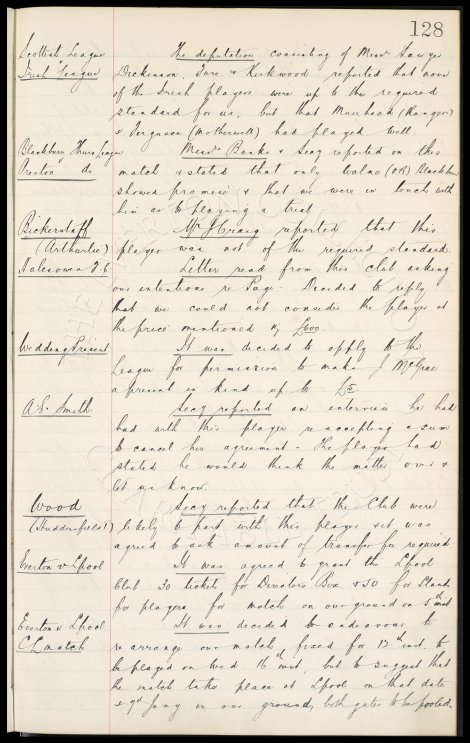 128
Scottish League
v
Irish League
The deputation consisting of Messrs Sawyer
Dickinson, Tare & Kirkwood reported that none
of the Irish players were up to the required
standard for us, but that Muirhead (Rangers)
& Ferguson (Motherwell) had played well
Blackburn Thurs. League
v
Preston do
Messrs Banks & Secy reported on this
match & stated that only (OR) Blackburn
showed promise & that we were in touch with
him as to playing a trial
Bickerstaff
(Arthurlie)
Mr J Craig reported that this
player was not of the required standard.
Halesowen F.C
Letter read from this club asking
our intentions re Page - Decided to reply
that we could not consider the player at
the price mentioned viz £600
Wedding Present
It was decided to apply to the
League for permission to make J McGrae
a present in kind up to
A.E. Smith
Secy reported an interview he had
had with this player re accepting a sum
to cancel his agreement - The player had
stated he would think the matter over &
let us know.
Wood
(Huddersfield)
Secy reported that the Club were
likely to part with this player & it was
agreed to ask amount of transfer fee required.
Everton v L'pool
It was agreed to grant the L'pool
Club 30 tickets for Directors Box & 50 for Stand
for players for match on our ground on 5th inst
Everton v L'pool
C L match
It was decided to endeavour to
re arrange our match fixed for 12th inst. to
be played on Wed 16th inst, but to suggest that
the match take place at L'pool on that date
& 9th Jany on our ground, both gates to be pooled.